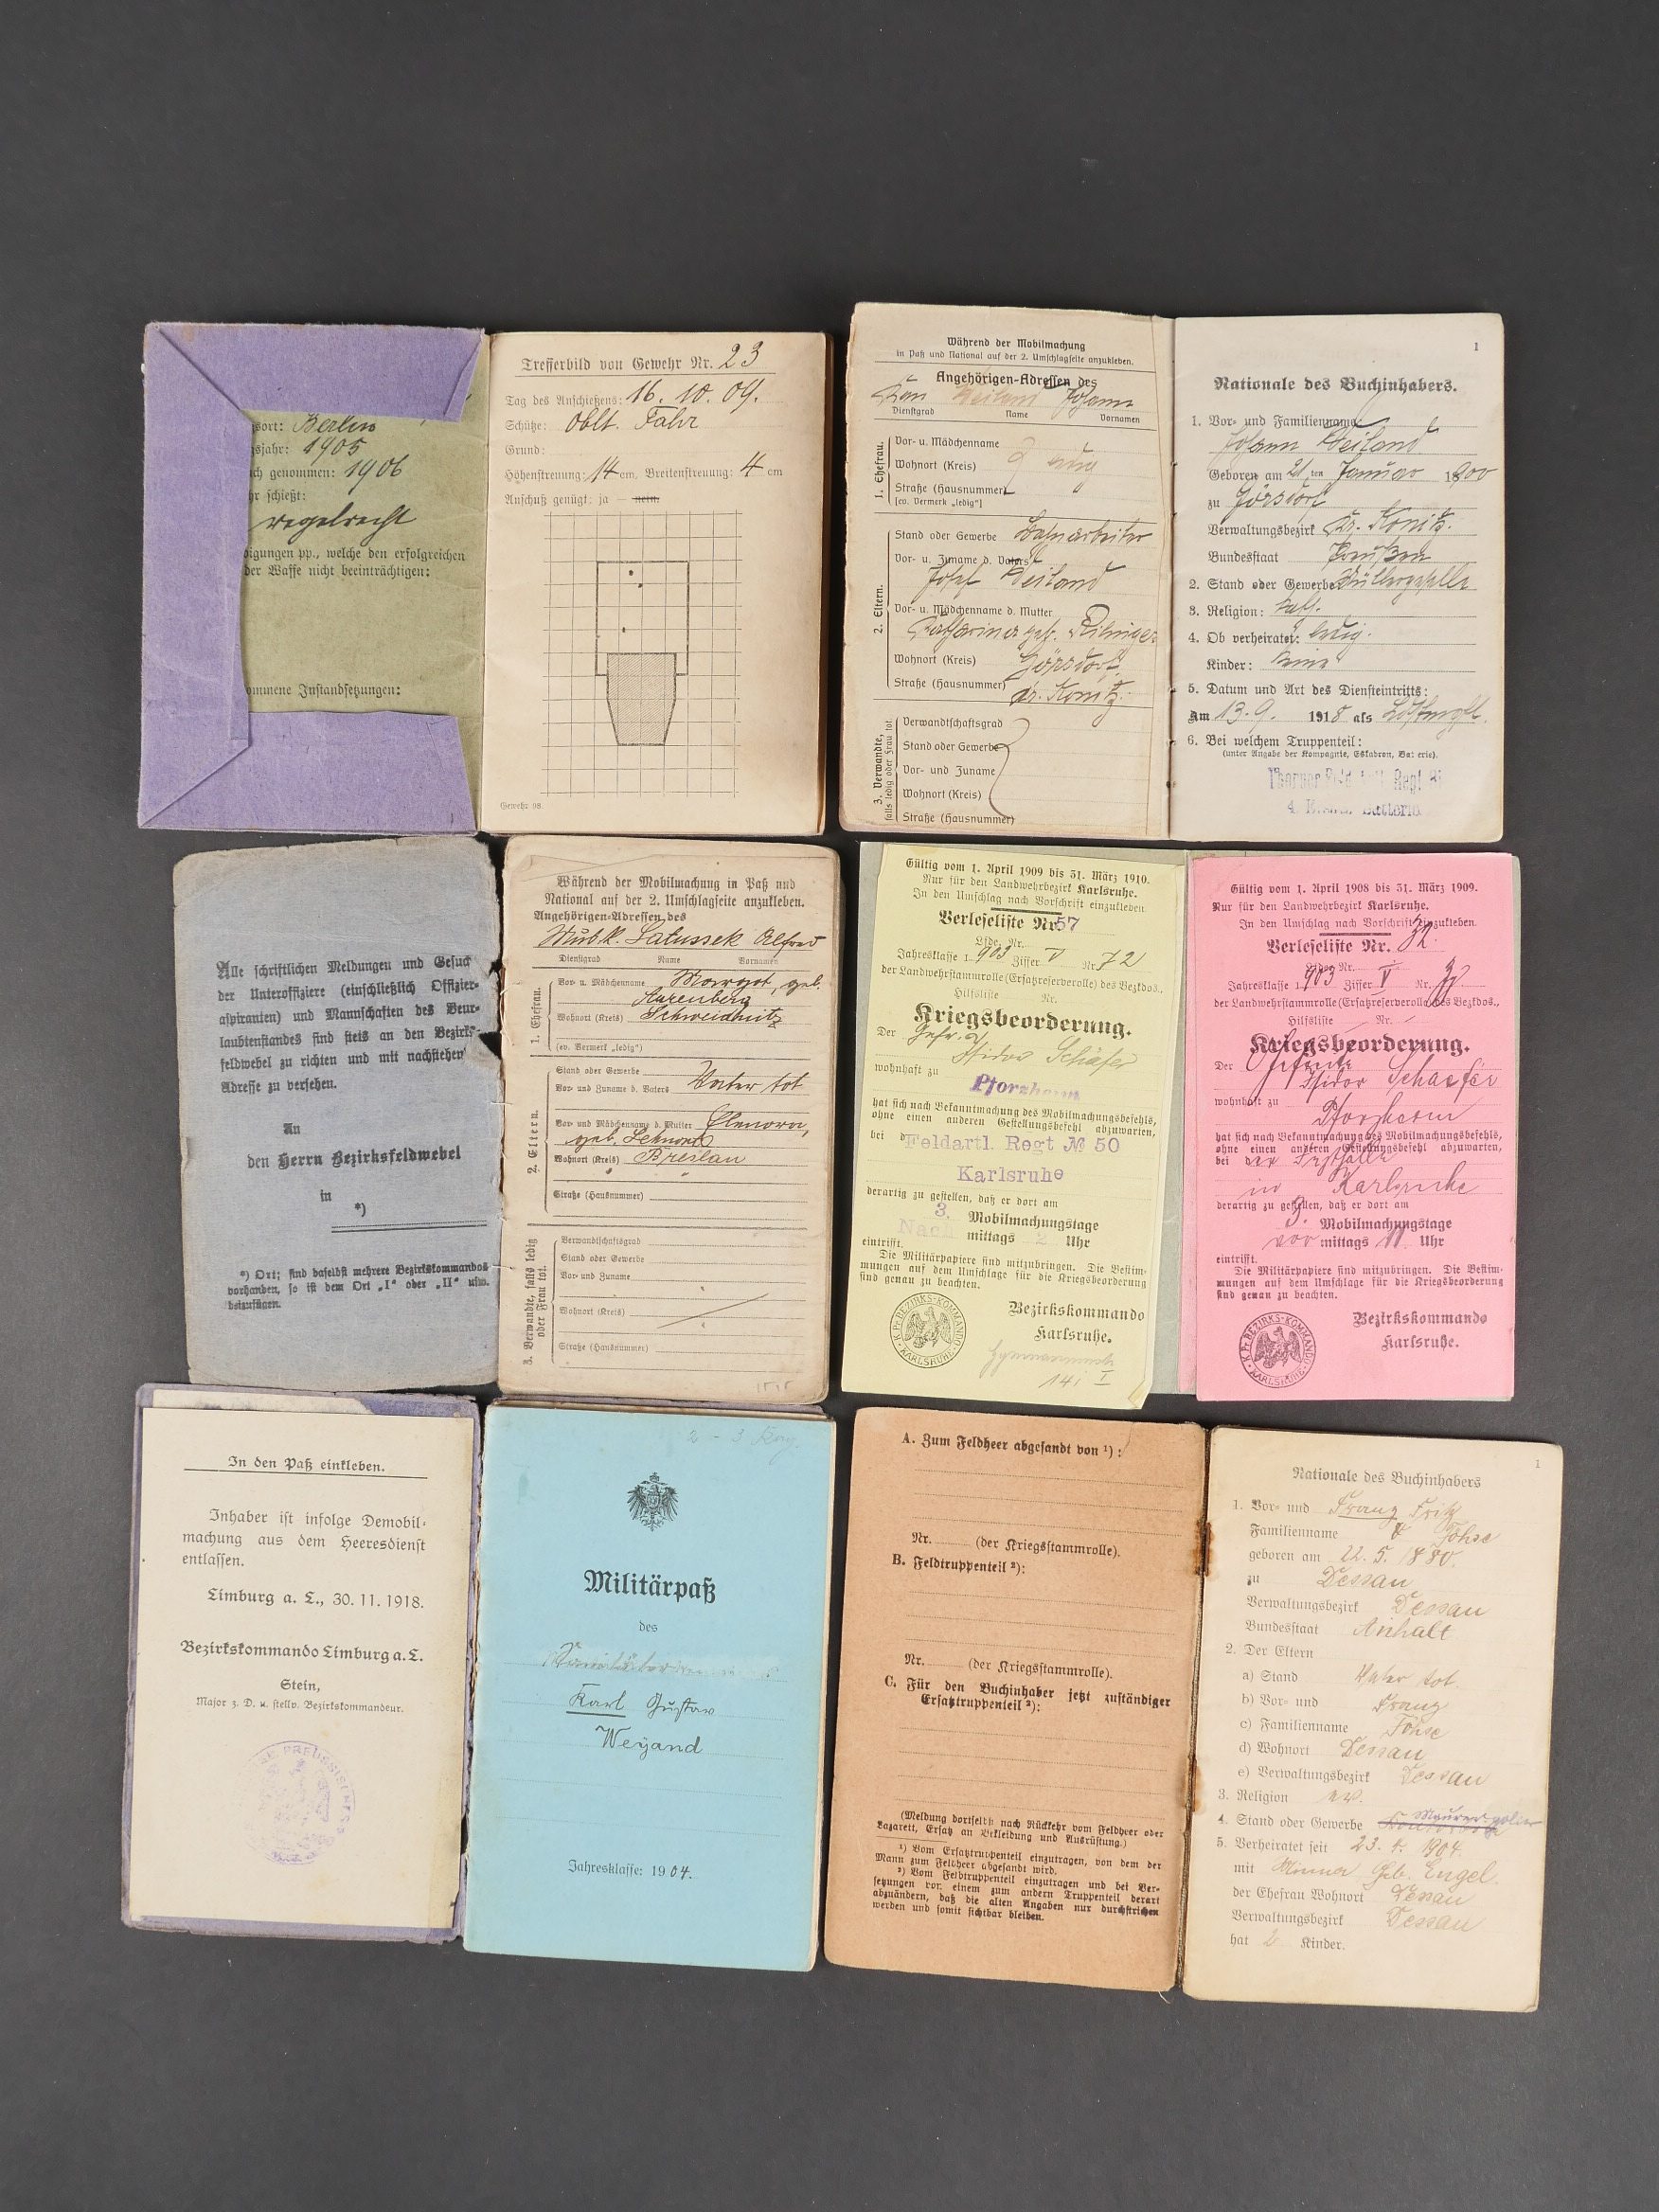 sort: Berlin
sjahr: 1905
ch genommen: 1906
hr schießt:
regelrecht
digungen pp., welche den erfolgreichen
der Waffe nicht beeinträchtigen:
ommene Instandsetzungen:
Trefferbild von Gewehr Nr. 23
Tag des Anschießens: 16. 10. 09.
Schütze: Oblt. Fahr
Grund:
Höhenstreuung: 14 cm, Breitenstreuung: 4 cm
Anschuß genügt: ja — nein.
Gewehr 98.
Während der Mobilmachung
in Paß und National auf der 2. Umschlagseite anzukleben.
Angehörigen-Adressen des
Kan Weiland Johann
Dienstgrad Name Vornamen
1. Ehefrau.
Vor- u. Mädchenname
Wohnort (Kreis)
Straße (Hausnummer)
[ev. Vermerk „ledig"]
2. Eltern.
Stand oder Gewerbe Bahnarbeiter
Vor- u. Zuname d. Vaters
Josef Weiland
Vor- u. Mädchenname d. Mutter
Katharina geb.
Wohnort (Kreis) Görsdorf
Straße (Hausnummer) Kr. Konitz.
3. Verwandte, falls ledig oder Frau tot.
Verwandtschaftsgrad
Stand oder Gewerbe
Vor- und Zuname
Wohnort (Kreis)
Straße (Hausnummer)
1
Nationale des Buchinhabers.
1. Vor- und Familienname
Johann Weiland
Geboren am 21ten Januar 1900
zu Görsdorf
Verwaltungsbezirk Kr. Konitz.
Bundesstaat Preußen
2. Stand oder Gewerbe Müllergeselle
3. Religion: kath.
4. Ob verheiratet: ledig.
Kinder: keine
5. Datum und Art des Diensteintritts:
Am 13. 9. 1918 als
6. Bei welchem Truppenteil:
(unter Angabe der Kompagnie, Eskadron, Batterie).
Thorner Feld Regt
4. Batterie
Alle schriftlichen Meldungen und Gesuch
der Unteroffiziere (einschließlich Offizier-
aspiranten) und Mannschaften des Beur-
laubtenstandes sind stets an den Bezirks-
feldwebel zu richten und mit nachstehen
Adresse zu versehen.
An
den Herrn Bezirksfeldwebel
in
*)
*) Ort; sind daselbst mehrere Bezirkskommandos
vorhanden, so ist dem Ort „I" oder „II" usw.
beizufügen.
Während der Mobilmachung in Paß und
National auf der 2. Umschlagseite anzukleben.
Angehörigen-Adressen des
Musk. Latussek Alfred
Dienstgrad Name Vornamen
1. Ehefrau.
Vor- u. Mädchenname Margot, geb.
Wohnort (Kreis) Schweidnitz
(ev. Vermerk „ledig")
2. Eltern.
Stand oder Gewerbe
Vor- und Zuname d. Vaters Vater tot
Vor- und Mädchenname d. Mutter Elenora,
geb.
Wohnort (Kreis) Breslau
Straße (Hausnummer)
3. Verwandte, falls ledig oder Frau tot.
Verwandtschaftsgrad
Stand oder Gewerbe
Vor- und Zuname
Wohnort (Kreis)
Straße (Hausnummer)
Gültig vom 1. April 1909 bis 31. März 1910.
Nur für den Landwehrbezirk Karlsruhe.
In den Umschlag nach Vorschrift einzukleben
Verleseliste Nr. 57
Lfde. Nr.
Jahresklasse 1903 Ziffer V Nr. 72
der Landwehrstammrolle (Ersatzreserverolle) des Bezkdos.,
Hilfsliste Nr.
Kriegsbeorderung.
Der Gefr. d.
Isidor Schäfer
wohnhaft zu
Pforzheim
hat sich nach Bekanntmachung des Mobilmachungsbefehls,
ohne einen anderen Gestellungsbefehl abzuwarten,
bei d Feldartl. Regt № 50
Karlsruhe
derartig zu gestellen, daß er dort am
3. Mobilmachungstage
Nach mittags 2 Uhr
eintrifft.
Die Militärpapiere sind mitzubringen. Die Bestim-
mungen auf dem Umschlage für die Kriegsbeorderung
sind genau zu beachten.
Bezirkskommando
Karlsruhe.
K. PR. BEZIRKS-KOMMANDO KARLSRUHE
14i I
Gültig vom 1. April 1908 bis 31. März 1909.
Nur für den Landwehrbezirk Karlsruhe.
In den Umschlag nach Vorschrift einzukleben.
Verleseliste Nr. 32.
Lfde. Nr.
Jahresklasse 1903 Ziffer V Nr.
der Landwehrstammrolle (Ersatzreserverolle) des Bezkdos.,
Hilfsliste Nr.
Kriegsbeorderung.
Der Gefreite
Isidor Schaefer
wohnhaft zu
Pforzheim
hat sich nach Bekanntmachung des Mobilmachungsbefehls,
ohne einen anderen Gestellungsbefehl abzuwarten,
bei der
in Karlsruhe
derartig zu gestellen, daß er dort am
3. Mobilmachungstage
vor mittags 11 Uhr
eintrifft.
Die Militärpapiere sind mitzubringen. Die Bestim-
mungen auf dem Umschlage für die Kriegsbeorderung
sind genau zu beachten.
Bezirkskommando
Karlsruhe.
K. PR. BEZIRKS-KOMMANDO KARLSRUHE
In den Paß einkleben.
Inhaber ist infolge Demobil-
machung aus dem Heeresdienst
entlassen.
Limburg a. L., 30. 11. 1918.
Bezirkskommando Limburg a. L.
Stein,
Major z. D. u. stellv. Bezirkskommandeur.
Militärpaß
des
Karl Gustav
Weyand
Jahresklasse: 1904.
A. Zum Feldheer abgesandt von ¹):
Nr. (der Kriegsstammrolle).
B. Feldtruppenteil ²):
Nr. (der Kriegsstammrolle).
C. Für den Buchinhaber jetzt zuständiger
Ersatztruppenteil ²):
(Meldung dortselbst nach Rückkehr vom Feldheer oder
Lazarett, Ersatz an Bekleidung und Ausrüstung.)
¹) Vom Ersatztruppenteil einzutragen, von dem der
Mann zum Feldheer abgesandt wird.
²) Vom Feldtruppenteil einzutragen und bei Ver-
setzungen von einem zum andern Truppenteil derart
abzuändern, daß die alten Angaben nur durchstrichen
werden und somit sichtbar bleiben.
1
Nationale des Buchinhabers
1. Vor- und Franz Fritz
Familienname Föhse
geboren am 22. 5. 1880.
zu Dessau
Verwaltungsbezirk Dessau
Bundesstaat Anhalt
2. Der Eltern
a) Stand Vater tot.
b) Vor- und Franz
c) Familienname Föhse
d) Wohnort Dessau
e) Verwaltungsbezirk Dessau
3. Religion ev.
4. Stand oder Gewerbe Maurerpolier
5. Verheiratet seit 23. 4. 1904
mit Minna Geb. Engel.
der Ehefrau Wohnort Dessau
Verwaltungsbezirk Dessau
hat 2 Kinder.